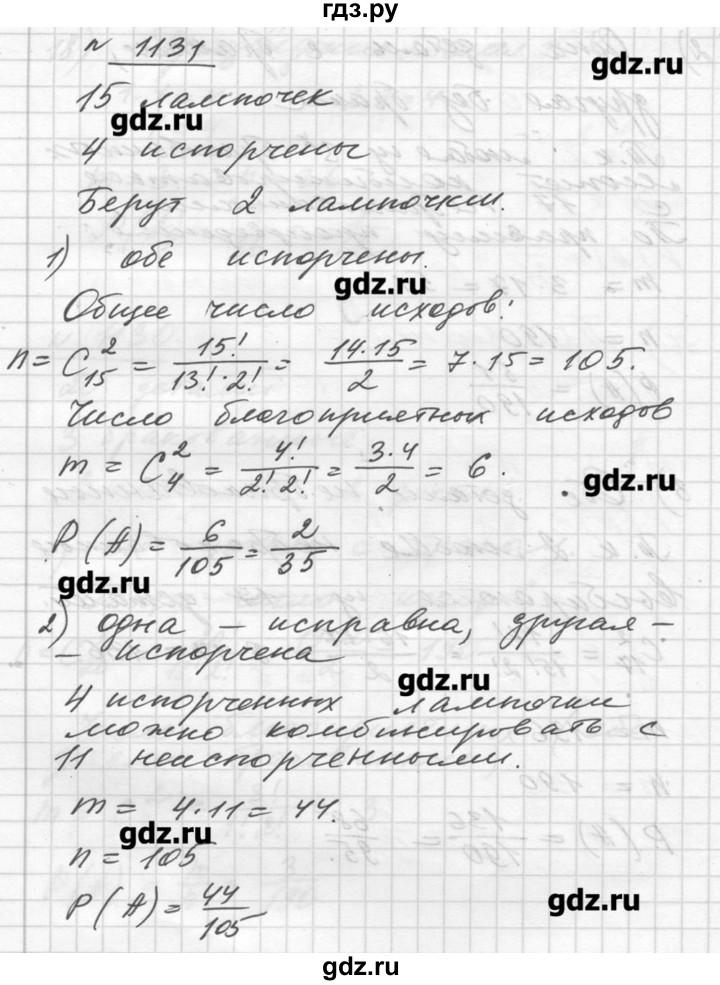 гдз.ру
№ 1131
gdz.ru
15 лампочек
gdz.ru
4 испорчены
Берут 2 лампочки.
1) обе испорчены.
gdz.ru
Общее число исходов:
n = C₁₅² = 15!/(13!·2!) = 14·15/2 = 7·15 = 105.
Число благоприятных исходов
m = C₄² = 4!/(2! 2!) = 3·4/2 = 6.
gdz.ru
P(A) = 6/105 = 2/35
gdz.ru
2) одна – исправна, другая –
– испорчена
gdz.ru
4 испорченных лампочки
можно комбинировать с
11 неиспорченными.
m = 4·11 = 44.
gdz.ru
n = 105
P(A) = 44/105
gdz.ru
gdz.ru